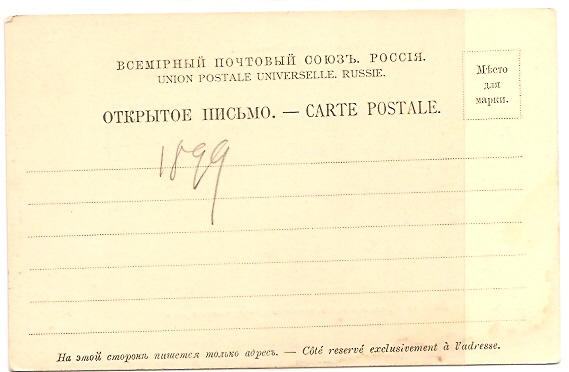 ВСЕМІРНЫЙ ПОЧТОВЫЙ СОЮЗЪ. РОССІЯ.
UNION POSTALE UNIVERSELLE. RUSSIE.
Мѣсто
для
марки.
ОТКРЫТОЕ ПИСЬМО. — CARTE POSTALE.
1899
На этой сторонѣ пишется только адресъ. — Côté reservé exclusivement à l'adresse.